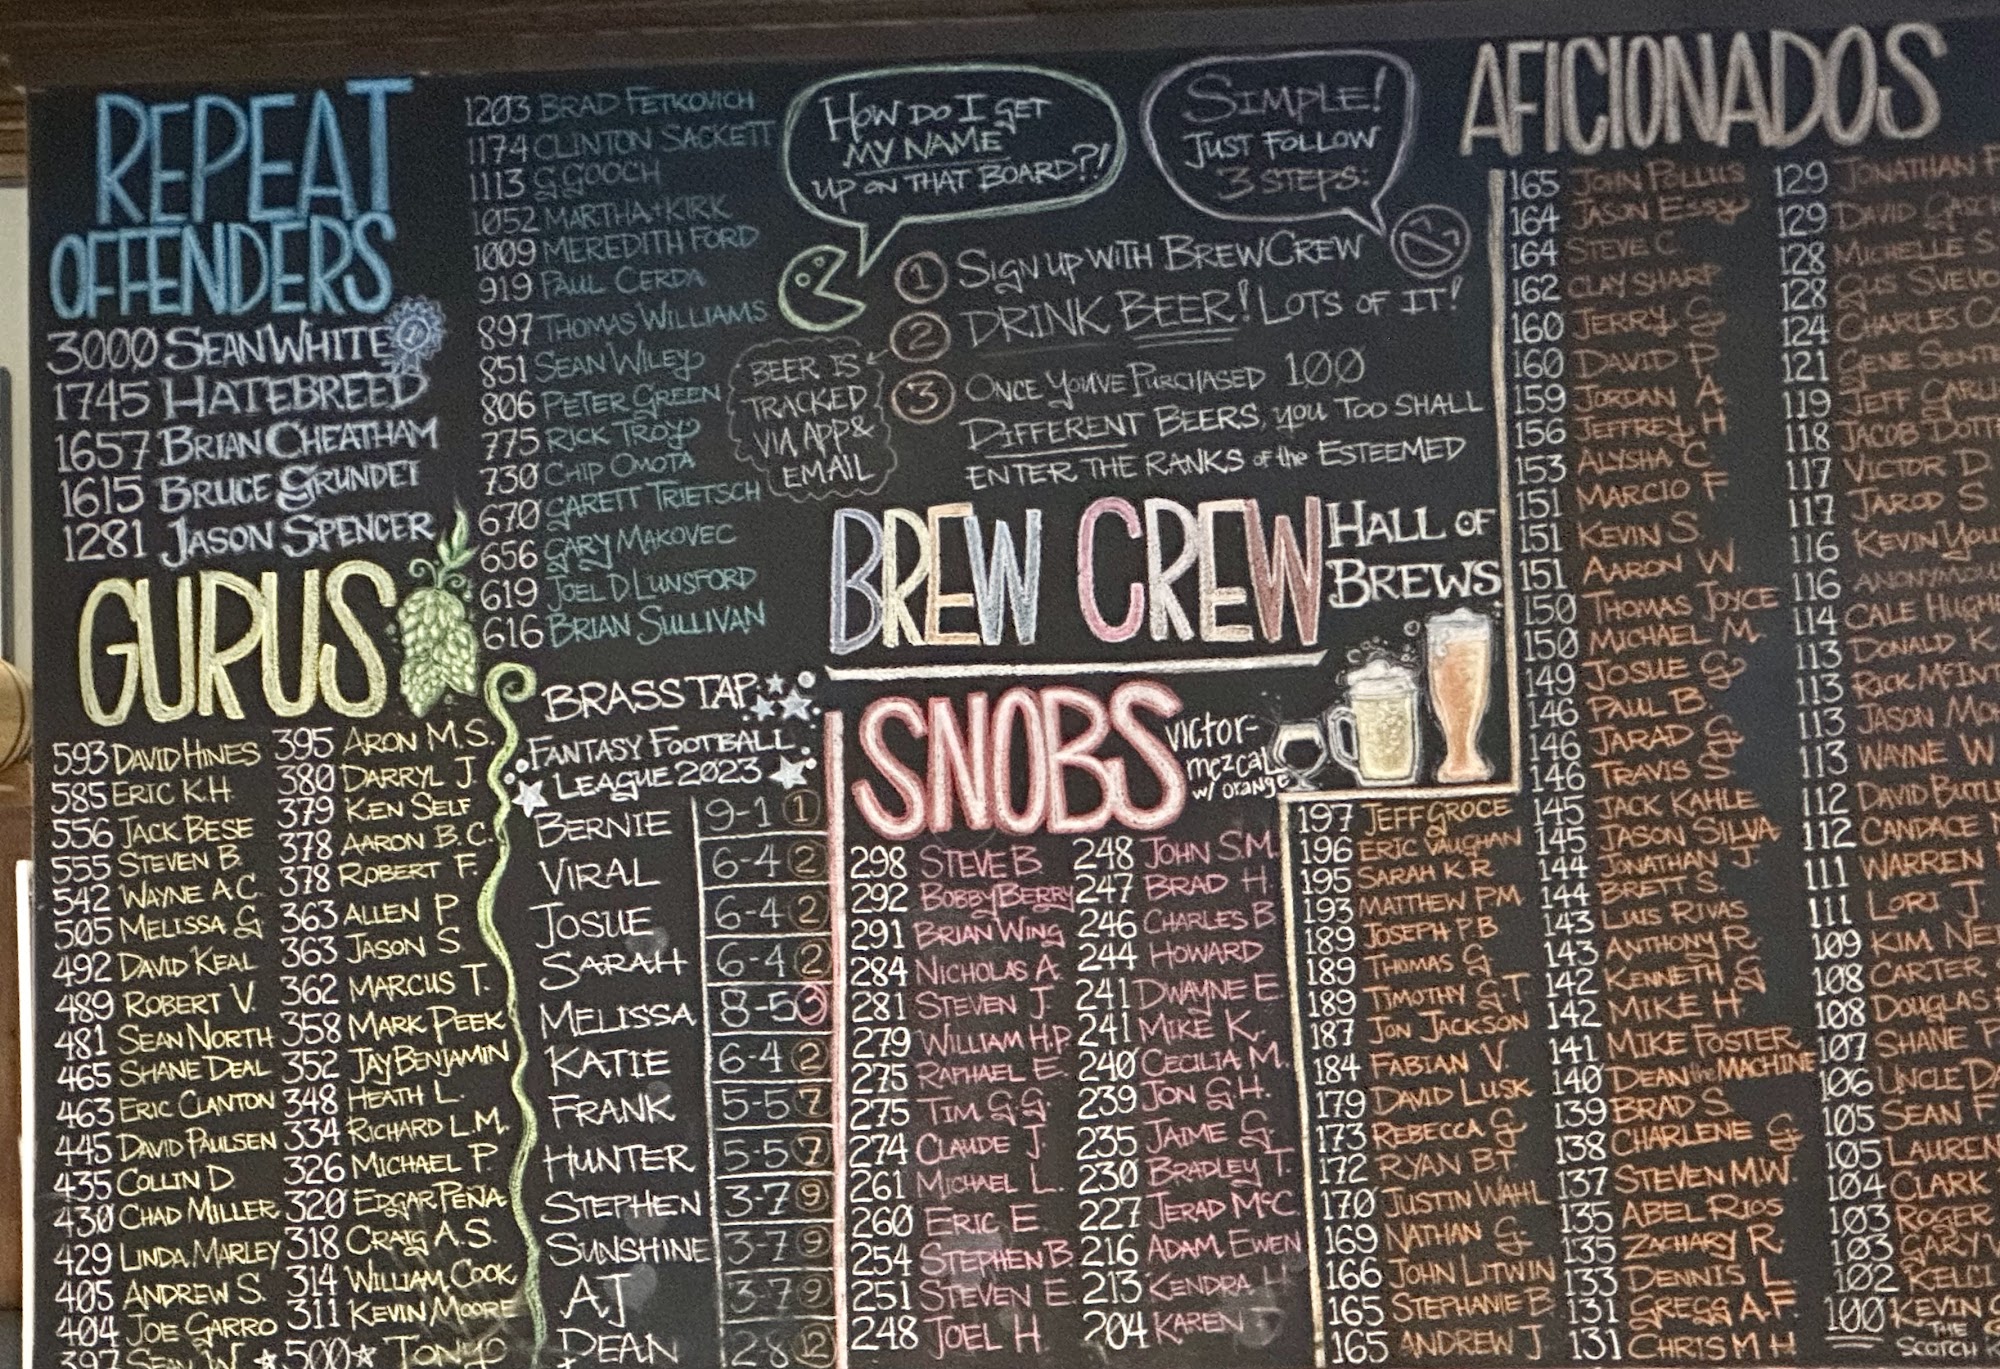 REPEAT
OFFENDERS
3000 SEAN WHITE
1745 HATEBREED
1657 BRIAN CHEATHAM
1615 BRUCE GRUNDET
1281 JASON SPENCER
1203 BRAD FETKOVICH
1174 CLINTON SACKETT
1113 G GOOCH
1052 MARTHA+KIRK
1009 MEREDITH FORD
919 PAUL CERDA
897 THOMAS WILLIAMS
851 SEAN WILEY
806 PETER GREEN
775 RICK TROY
730 CHIP OMOTA
670 GARETT TRIETSCH
656 GARY MAKOVEC
619 JOEL D LUNSFORD
616 BRIAN SULLIVAN
HOW DO I GET
MY NAME
UP ON THAT BOARD?!
SIMPLE!
JUST FOLLOW
3 STEPS:
1 SIGN UP WITH BREWCREW
2 DRINK BEER! LOTS OF IT!
3 ONCE YOU'VE PURCHASED 100
DIFFERENT BEERS, YOU TOO SHALL
ENTER THE RANKS of the ESTEEMED
BEER IS
TRACKED
VIA APP &
EMAIL
BREW CREW
HALL OF
BREWS
GURUS
593 DAVID HINES
585 ERIC K.H.
556 JACK BESE
555 STEVEN B.
542 WAYNE A.C.
505 MELISSA G
492 DAVID KEAL
489 ROBERT V.
481 SEAN NORTH
465 SHANE DEAL
463 ERIC CLANTON
445 DAVID PAULSEN
435 COLLIN D
430 CHAD MILLER
429 LINDA MARLEY
405 ANDREW S.
404 JOE GARRO
397 SEAN W
395 ARON M.S.
380 DARRYL J.
379 KEN SELF
378 AARON B.C.
378 ROBERT F.
363 ALLEN P
363 JASON S
362 MARCUS T.
358 MARK PEEK
352 JAY BENJAMIN
348 HEATH L.
334 RICHARD L.M.
326 MICHAEL P.
320 EDGAR PEÑA
318 CRAIG A.S.
314 WILLIAM COOK
311 KEVIN MOORE
500 TONY
BRASS TAP
FANTASY FOOTBALL
LEAGUE 2023
BERNIE 9-1 1
VIRAL 6-4 2
JOSUE 6-4 2
SARAH 6-4 2
MELISSA 8-5 3
KATIE 6-4 2
FRANK 5-5 7
HUNTER 5-5 7
STEPHEN 3-7 9
SUNSHINE 3-7 9
AJ 3-7 9
DEAN 2-8 12
SNOBS
VICTOR-
mezcal
w/ orange
298 STEVE B
292 BOBBY BERRY
291 BRIAN WING
284 NICHOLAS A.
281 STEVEN J.
279 WILLIAM H.P.
275 RAPHAEL E.
275 TIM G.G.
274 CLAUDE J.
261 MICHAEL L.
260 ERIC E.
254 STEPHEN B.
251 STEVEN E.
248 JOEL H.
248 JOHN S.M.
247 BRAD H.
246 CHARLES B
244 HOWARD
241 DWAYNE E.
241 MIKE K.
240 CECILIA M.
239 JON G.H.
235 JAIME G.
230 BRADLEY T.
227 JERAD McC
216 ADAM EWEN
213 KENDRA H
204 KAREN
AFICIONADOS
197 JEFF GROCE
196 ERIC VAUGHAN
195 SARAH K R
193 MATTHEW P.M
189 JOSEPH P.B
189 THOMAS G.
189 TIMOTHY G.T
187 JON JACKSON
184 FABIAN V.
179 DAVID LUSK
173 REBECCA G
172 RYAN B.T.
170 JUSTIN WAHL
169 NATHAN G.
166 JOHN LITWIN
165 STEPHANIE B
165 ANDREW J.
165 JOHN POLLUS
164 JASON
164 STEVE C
162 CLAY SHARP
160 JERRY G
160 DAVID P.
159 JORDAN A
156 JEFFREY H
153 ALYSHA C
151 MARCIO F.
151 KEVIN S.
151 AARON W.
150 THOMAS JOYCE
150 MICHAEL M.
149 JOSUE G
146 PAUL B.
146 JARAD G
146 TRAVIS S.
145 JACK KAHLE
145 JASON SILVA
144 JONATHAN J.
144 BRETT S.
143 LUIS RIVAS
143 ANTHONY R
142 KENNETH G
142 MIKE H
141 MIKE FOSTER
140 DEAN the MACHINE
139 BRAD S.
138 CHARLENE G
137 STEVEN M.W.
135 ABEL RIOS
135 ZACHARY R.
133 DENNIS L.
131 GREGG A.F.
131 CHRIS M H
129 JONATHAN
129 DAVID
128 MICHELLE S
128 GUS
124 CHARLES
121 GENE
119 JEFF
118 JACOB
117 VICTOR D
117 JAROD S
116 KEVIN
116
114 CALE
113 DONALD K
113 RICK
113 JASON
113 WAYNE W
112 DAVID
112 CANDACE
111 WARREN
111 LORI J.
109 KIM
108 CARTER
108 DOUGLAS
107 SHANE
106 UNCLE
105 SEAN F
105 LAUREN
104 CLARK
103 ROGER
103 GARY
102
100 KEVIN
THE
SCOTCH